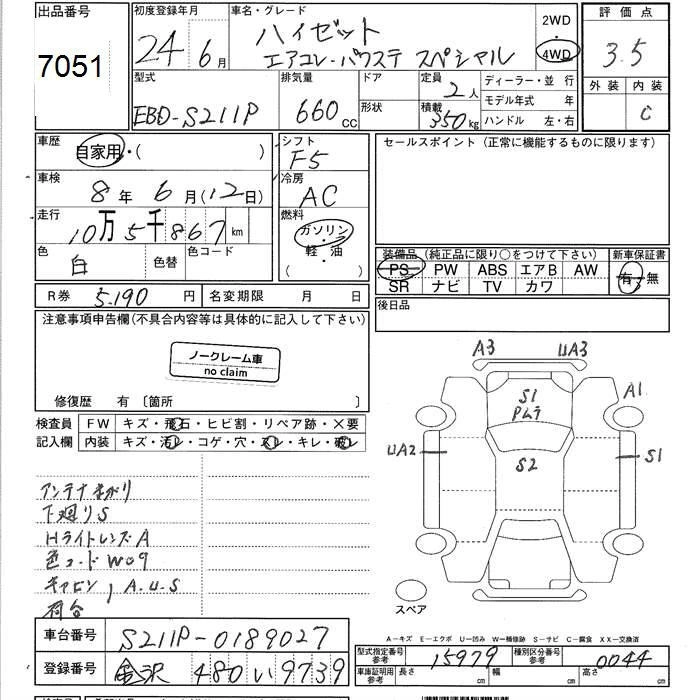 出品番号
7051
初度登録年月
24年6月
車名・グレード
ハイゼット
エアコン・パワステ スペシャル
2WD
4WD
評価点
3.5
型式
EBD-S211P
排気量
660cc
ドア
形状
定員 2人
積載 350kg
ディーラー・並行
モデル年式 年
ハンドル 左・右
外装 内装
C
車歴
自家用・( )
シフト
F5
セールスポイント(正常に機能するものに限ります)
車検
8年6月(12日)
冷房
AC
走行
10万5千867km
燃料
ガソリン
軽・油
( )
色
白
色替
色コード
装備品(純正品に限り○をつけて下さい)
新車保証書
PS PW ABS エアB AW
SR ナビ TV カワ
有・無
R券 5,190円
名変期限 月 日
後日品
注意事項申告欄(不具合内容等は具体的に記入して下さい)
ノークレーム車
no claim
修復歴 有〔箇所 〕
検査員
記入欄
FW キズ・飛石・ヒビ割・リペア跡・×要
内装 キズ・汚レ・コゲ・穴・スレ・キレ・破レ
アンテナまがり
下廻りS
HライトレンズA
色コードW09
キャビン, A.U.S
荷台
A3 UA3
S1
Pムラ
A1
UA2
S2
S1
スペア
A-キズ E-エクボ U-凹み W-補修跡 S-サビ C-腐食 XX-交換済
車台番号
S211P-0189027
登録番号
金沢 480 い 9739
型式指定番号
参考
15979
種別区分番号
参考
0044
車庫証明用
参考
長さ cm 幅 cm 高さ cm